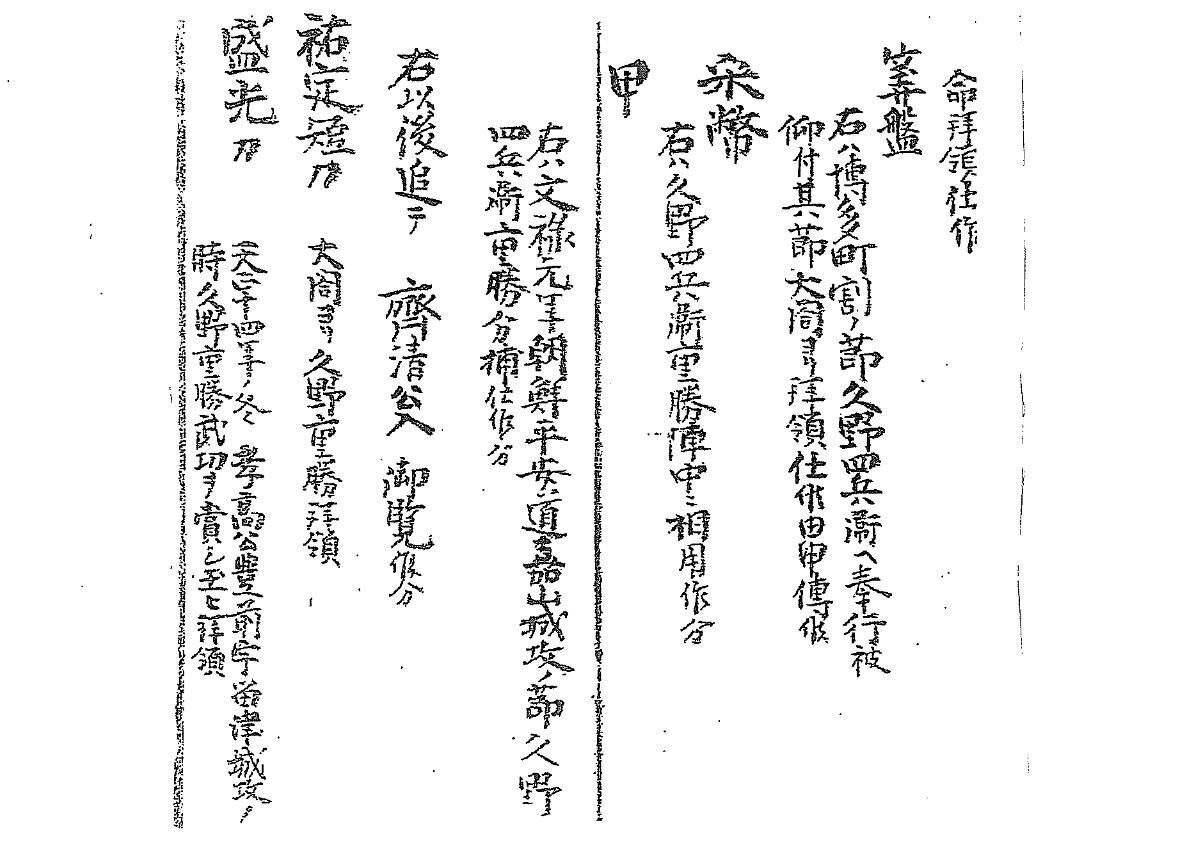 命拝領仕候
算盤
右ハ博多町割ノ節久野四兵衛ヘ奉行被
仰付其節大閤ヨリ拝領仕候由申傳候
采幣
右ハ久野四兵衛重勝陣中ニ相用候分
甲
右ハ文禄元年朝鮮平安道嘉山城攻ノ節久野
四兵衛重勝分捕仕候分
右以後追テ 齊清公入 御覧候分
祐定短刀 大閤ヨリ久野重勝拝領
盛光刀 天正十四年ノ冬 孝高公豊前宇留津城攻ノ
時久野重勝武功ヲ賞シ玉ヒ拝領